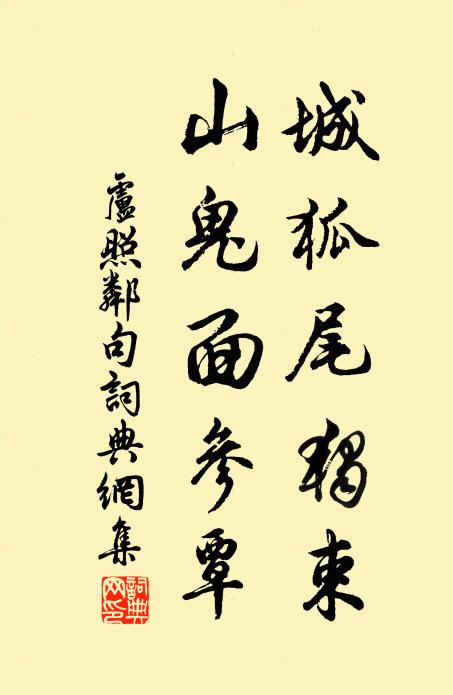 城狐尾獨束
山鬼面參覃
盧照鄰句詞典網集
詞典
网印